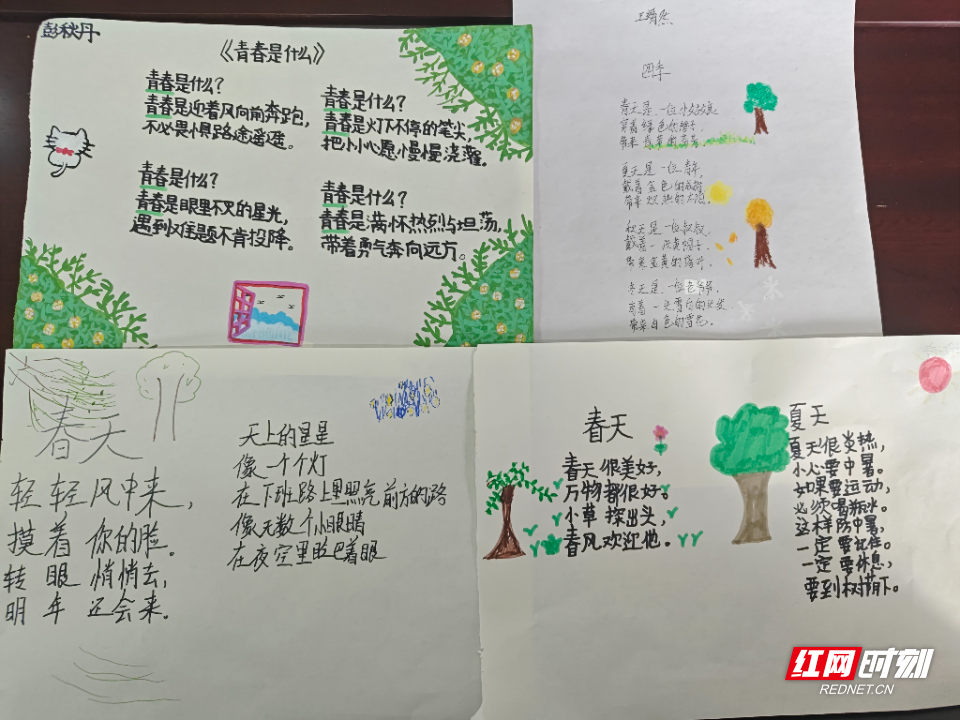 彭秋丹
《青春是什么》
青春是什么?
青春是迎着风向前奔跑,
不必畏惧路途遥遥。
青春是什么?
青春是灯下不停的笔尖,
把小小心愿慢慢浇灌。
青春是什么?
青春是眼里不灭的星光,
遇到难题不肯投降。
青春是什么?
青春是满怀热烈与坦荡,
带着勇气奔向远方。
四季
春天是一位小姑娘,
穿着绿色的裙子,
夏天是一位青年,
戴着金色的
带来 的太阳。
秋天是一位叔叔,
戴着一顶黄帽子,
带来金黄的
冬天是一位老爷爷,
一头雪白的头发
带来白色的雪花。
春天
轻轻风中来,
摸着你的脸。
转眼悄悄去,
明年还会来。
天上的星星
像一个个灯
在下班路上照亮前方的路
像无数个小眼睛
在夜空里眨巴着眼
春天
春天很美好,
万物都很好。
小草探出头,
春风欢迎他。
夏天
夏天很炎热,
小心要中暑。
如果要运动,
必须喝瓶冰。
这样防中暑,
一定要记住。
一定要休息,
要到树荫下。
红网时刻
REDNET.CN